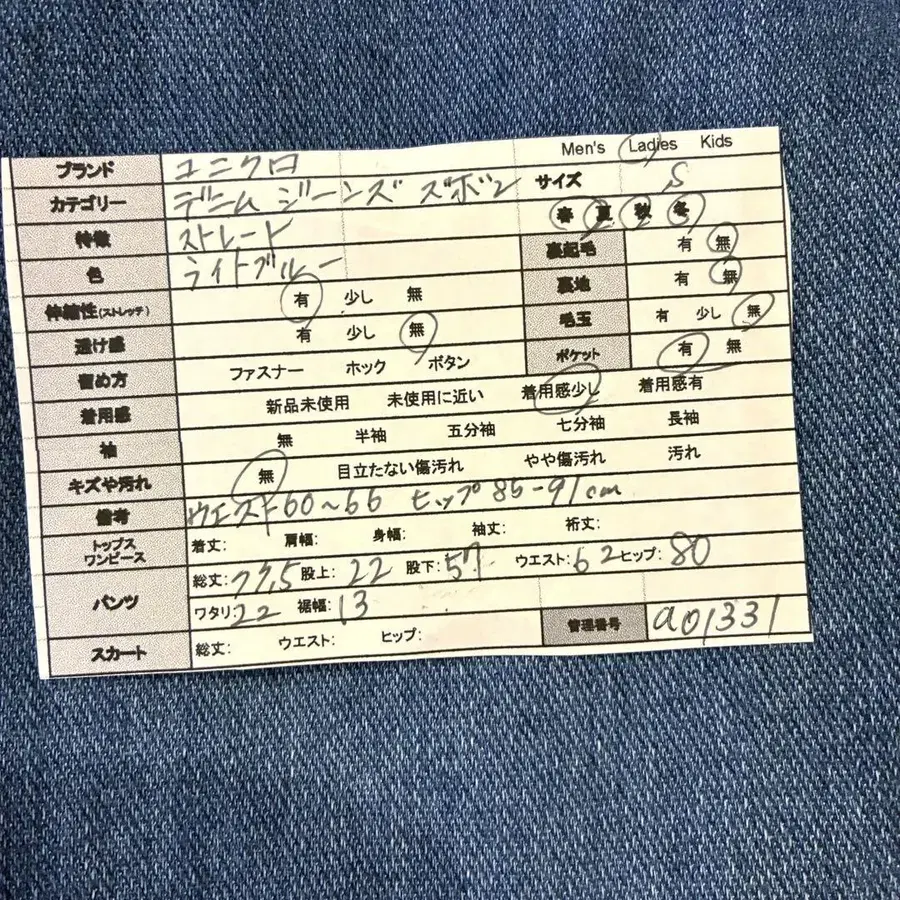 Men's Ladies Kids
ブランド ユニクロ
カテゴリー デニム ジーンズ ズボン サイズ S
特徴 ストレート 春 夏 秋 冬
色 ライトブルー 裏起毛 有 無
伸縮性(ストレッチ) 有 少し 無 裏地 有 無
透け感 有 少し 無 毛玉 有 少し 無
留め方 ファスナー ホック ボタン ポケット 有 無
着用感 新品未使用 未使用に近い 着用感少し 着用感有
袖 無 半袖 五分袖 七分袖 長袖
キズや汚れ 無 目立たない傷汚れ やや傷汚れ 汚れ
備考 ウエスト60~66 ヒップ85-91cm
トップス ワンピース 着丈: 肩幅: 身幅: 袖丈: 裄丈:
パンツ 総丈:77,5 股上:22 股下:57 ウエスト:62 ヒップ:80
ワタリ:22 裾幅:13
スカート 総丈: ウエスト: ヒップ: 管理番号 a01331